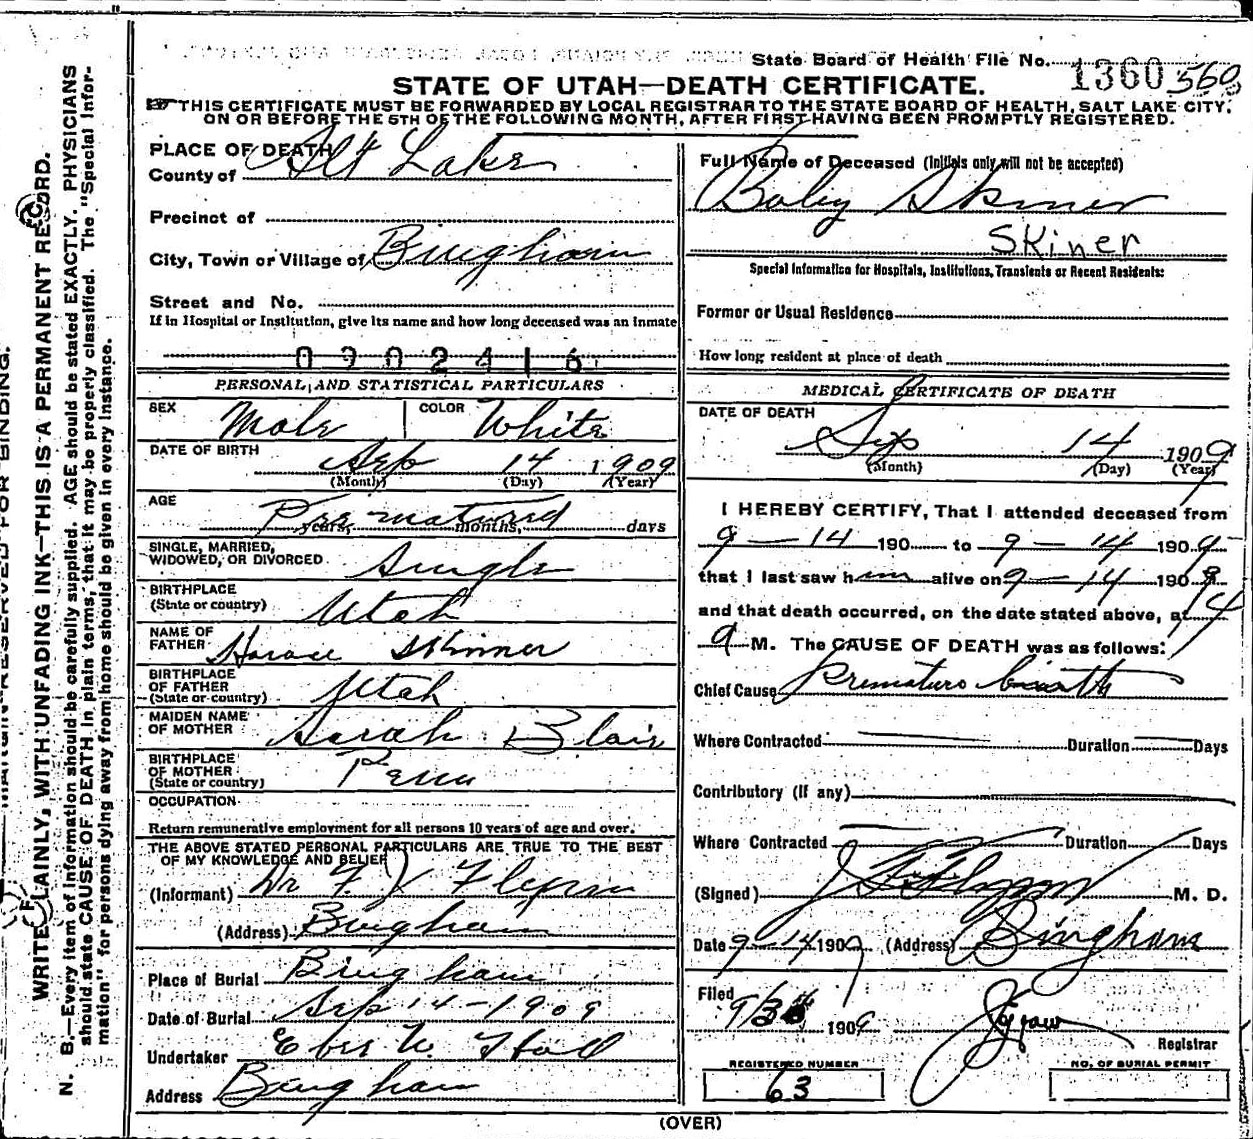 State Board of Health File No. 1360 560
STATE OF UTAH—DEATH CERTIFICATE.
THIS CERTIFICATE MUST BE FORWARDED BY LOCAL REGISTRAR TO THE STATE BOARD OF HEALTH, SALT LAKE CITY,
ON OR BEFORE THE 5TH OF THE FOLLOWING MONTH, AFTER FIRST HAVING BEEN PROMPTLY REGISTERED.
WRITE PLAINLY, WITH UNFADING INK—THIS IS A PERMANENT RECORD.
N. B.—Every item of information should be carefully supplied. AGE should be stated EXACTLY. PHYSICIANS
should state CAUSE OF DEATH in plain terms, that it may be properly classified. The "Special Infor-
mation" for persons dying away from home should be given in every instance.
PLACE OF DEATH
County of Salt Lake
Precinct of
City, Town or Village of Bingham
Street and No.
If in Hospital or Institution, give its name and how long deceased was an inmate
0902416
PERSONAL AND STATISTICAL PARTICULARS
SEX Male COLOR White
DATE OF BIRTH Sep 14 1909
(Month) (Day) (Year)
AGE Prematured
years, months, days
SINGLE, MARRIED,
WIDOWED, OR DIVORCED Single
BIRTHPLACE
(State or country) Utah
NAME OF
FATHER Horace Skinner
BIRTHPLACE
OF FATHER
(State or country) Utah
MAIDEN NAME
OF MOTHER Sarah Blair
BIRTHPLACE
OF MOTHER
(State or country) Penn
OCCUPATION
Return remunerative employment for all persons 10 years of age and over.
THE ABOVE STATED PERSONAL PARTICULARS ARE TRUE TO THE BEST
OF MY KNOWLEDGE AND BELIEF
(Informant) Dr F. J
(Address) Bingham
Place of Burial Bingham
Date of Burial Sep 14-1909
Undertaker Eber W. Hall
Address Bingham
Full Name of Deceased (Initials only will not be accepted)
Baby Skiner
Skiner
Special Information for Hospitals, Institutions, Transients or Recent Residents:
Former or Usual Residence
How long resident at place of death
MEDICAL CERTIFICATE OF DEATH
DATE OF DEATH
Sep 14 1909
(Month) (Day) (Year)
I HEREBY CERTIFY, That I attended deceased from
9-14 190 to 9-14 1909
that I last saw him alive on 9-14 1909
and that death occurred, on the date stated above, at 4
a M. The CAUSE OF DEATH was as follows:
Chief Cause Premature birth
Where Contracted Duration Days
Contributory (If any)
Where Contracted Duration Days
(Signed) M. D.
Date 9-14 1909 (Address) Bingham
Filed
1909
Registrar
REGISTERED NUMBER
63
NO. OF BURIAL PERMIT
(OVER)